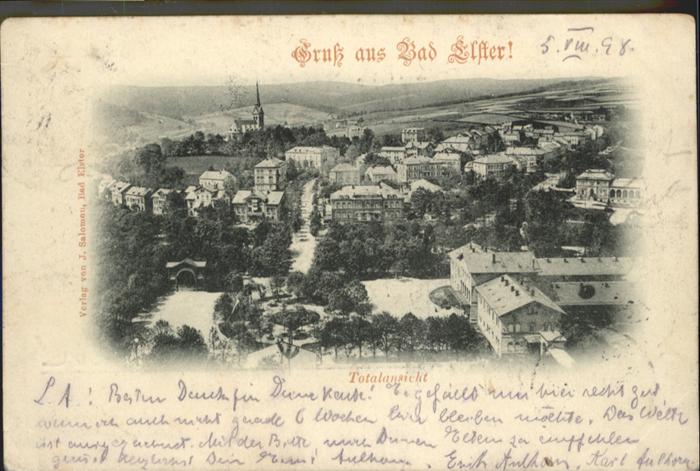 Gruß aus Bad Elster!
5. VIII. 98.
Verlag von J. Salomon, Bad Elster
Totalansicht
L. A.! Besten Dank für Deine Karte! Es gefällt mir hier recht gut
wenn ich auch nicht gerade 6 Wochen hier bleiben möchte. Das Wetter
ist ausgezeichnet. Mit der Bitte mich Deinen Eltern zu empfehlen
grüßt herzlichst Dein Erich Karl